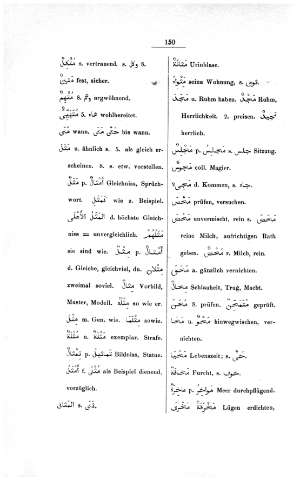 150
مُتَّكِلٌ s. وكل 8. vertrauend.
مَتِينٌ fest, sicher.
مُتَّهِمٌ s. وهم 8. argwöhnend.
wohlbereitet.
مَتَى wann. حَتَّى مَتَى bis wann.
مَثَلَ u. ähnlich s. 5. als gleich er-
scheinen. 8. a. etw. vorstellen.
مَثَلٌ p. أَمْثَالٌ Gleichniss, Sprüch-
wort. مَثَلاً wie z. Beispiel.
المَثَلُ الأَعْلَى d. höchste Gleich-
niss zu unvergleichlich.
مِثْلٌ p. أَمْثَالٌ sie sind wie.
d. Gleiche, gleichviel, du.
zweimal soviel. مِثَالٌ Vorbild,
Muster, Modell. مِثْلَهُ so wie er.
مِثْلَ m. Gen. wie. مِثْلَمَا sowie.
exemplar. Strafe.
تِمْثَالٌ p. تَمَاثِيلُ Bildniss, Statue.
أَمْثَلُ f. مُثْلَى als Beispiel dienend,
vorzüglich.
المُتَّاقِي s. وقى.
مَثَانَةٌ Urinblase.
seine Wohnung, s. ثوى.
مَجَدَ u. Ruhm haben. مَجْدٌ Ruhm,
Herrlichkeit. 2. preisen. مَجِيدٌ
herrlich.
مَجْلِسٌ p. مَجَالِسُ s. جلس Sitzung.
مَجُوسٌ coll. Magier.
d. Kommen, s. جاء.
prüfen, versuchen.
مَحَضَ unvermischt, rein s. مَحْضٌ
reine Milch, aufrichtigen Rath
geben. مَحْضٌ r. Milch, rein.
مَحَقَ a. gänzlich vernichten.
Schlauheit, Trug, Macht.
8. prüfen. geprüft.
مَحَا u. مَحْوٌ hinwegwischen, ver-
nichten.
مَحْيَا Lebenszeit; s. حىّ.
مَخَافَةٌ Furcht, s. خوف.
p. مَوَاخِرُ Meer durchpflügend.
مَخْرَقَةٌ Lügen erdichten,